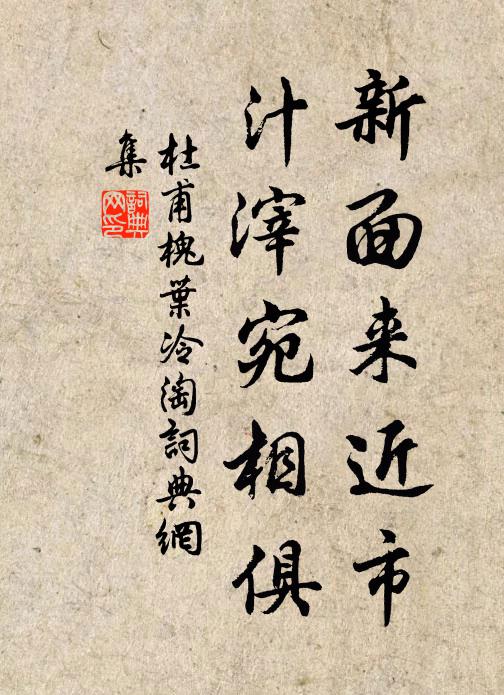 新面来近市
汁滓宛相俱
杜甫槐葉冷淘詞典網
集
詞典
网印